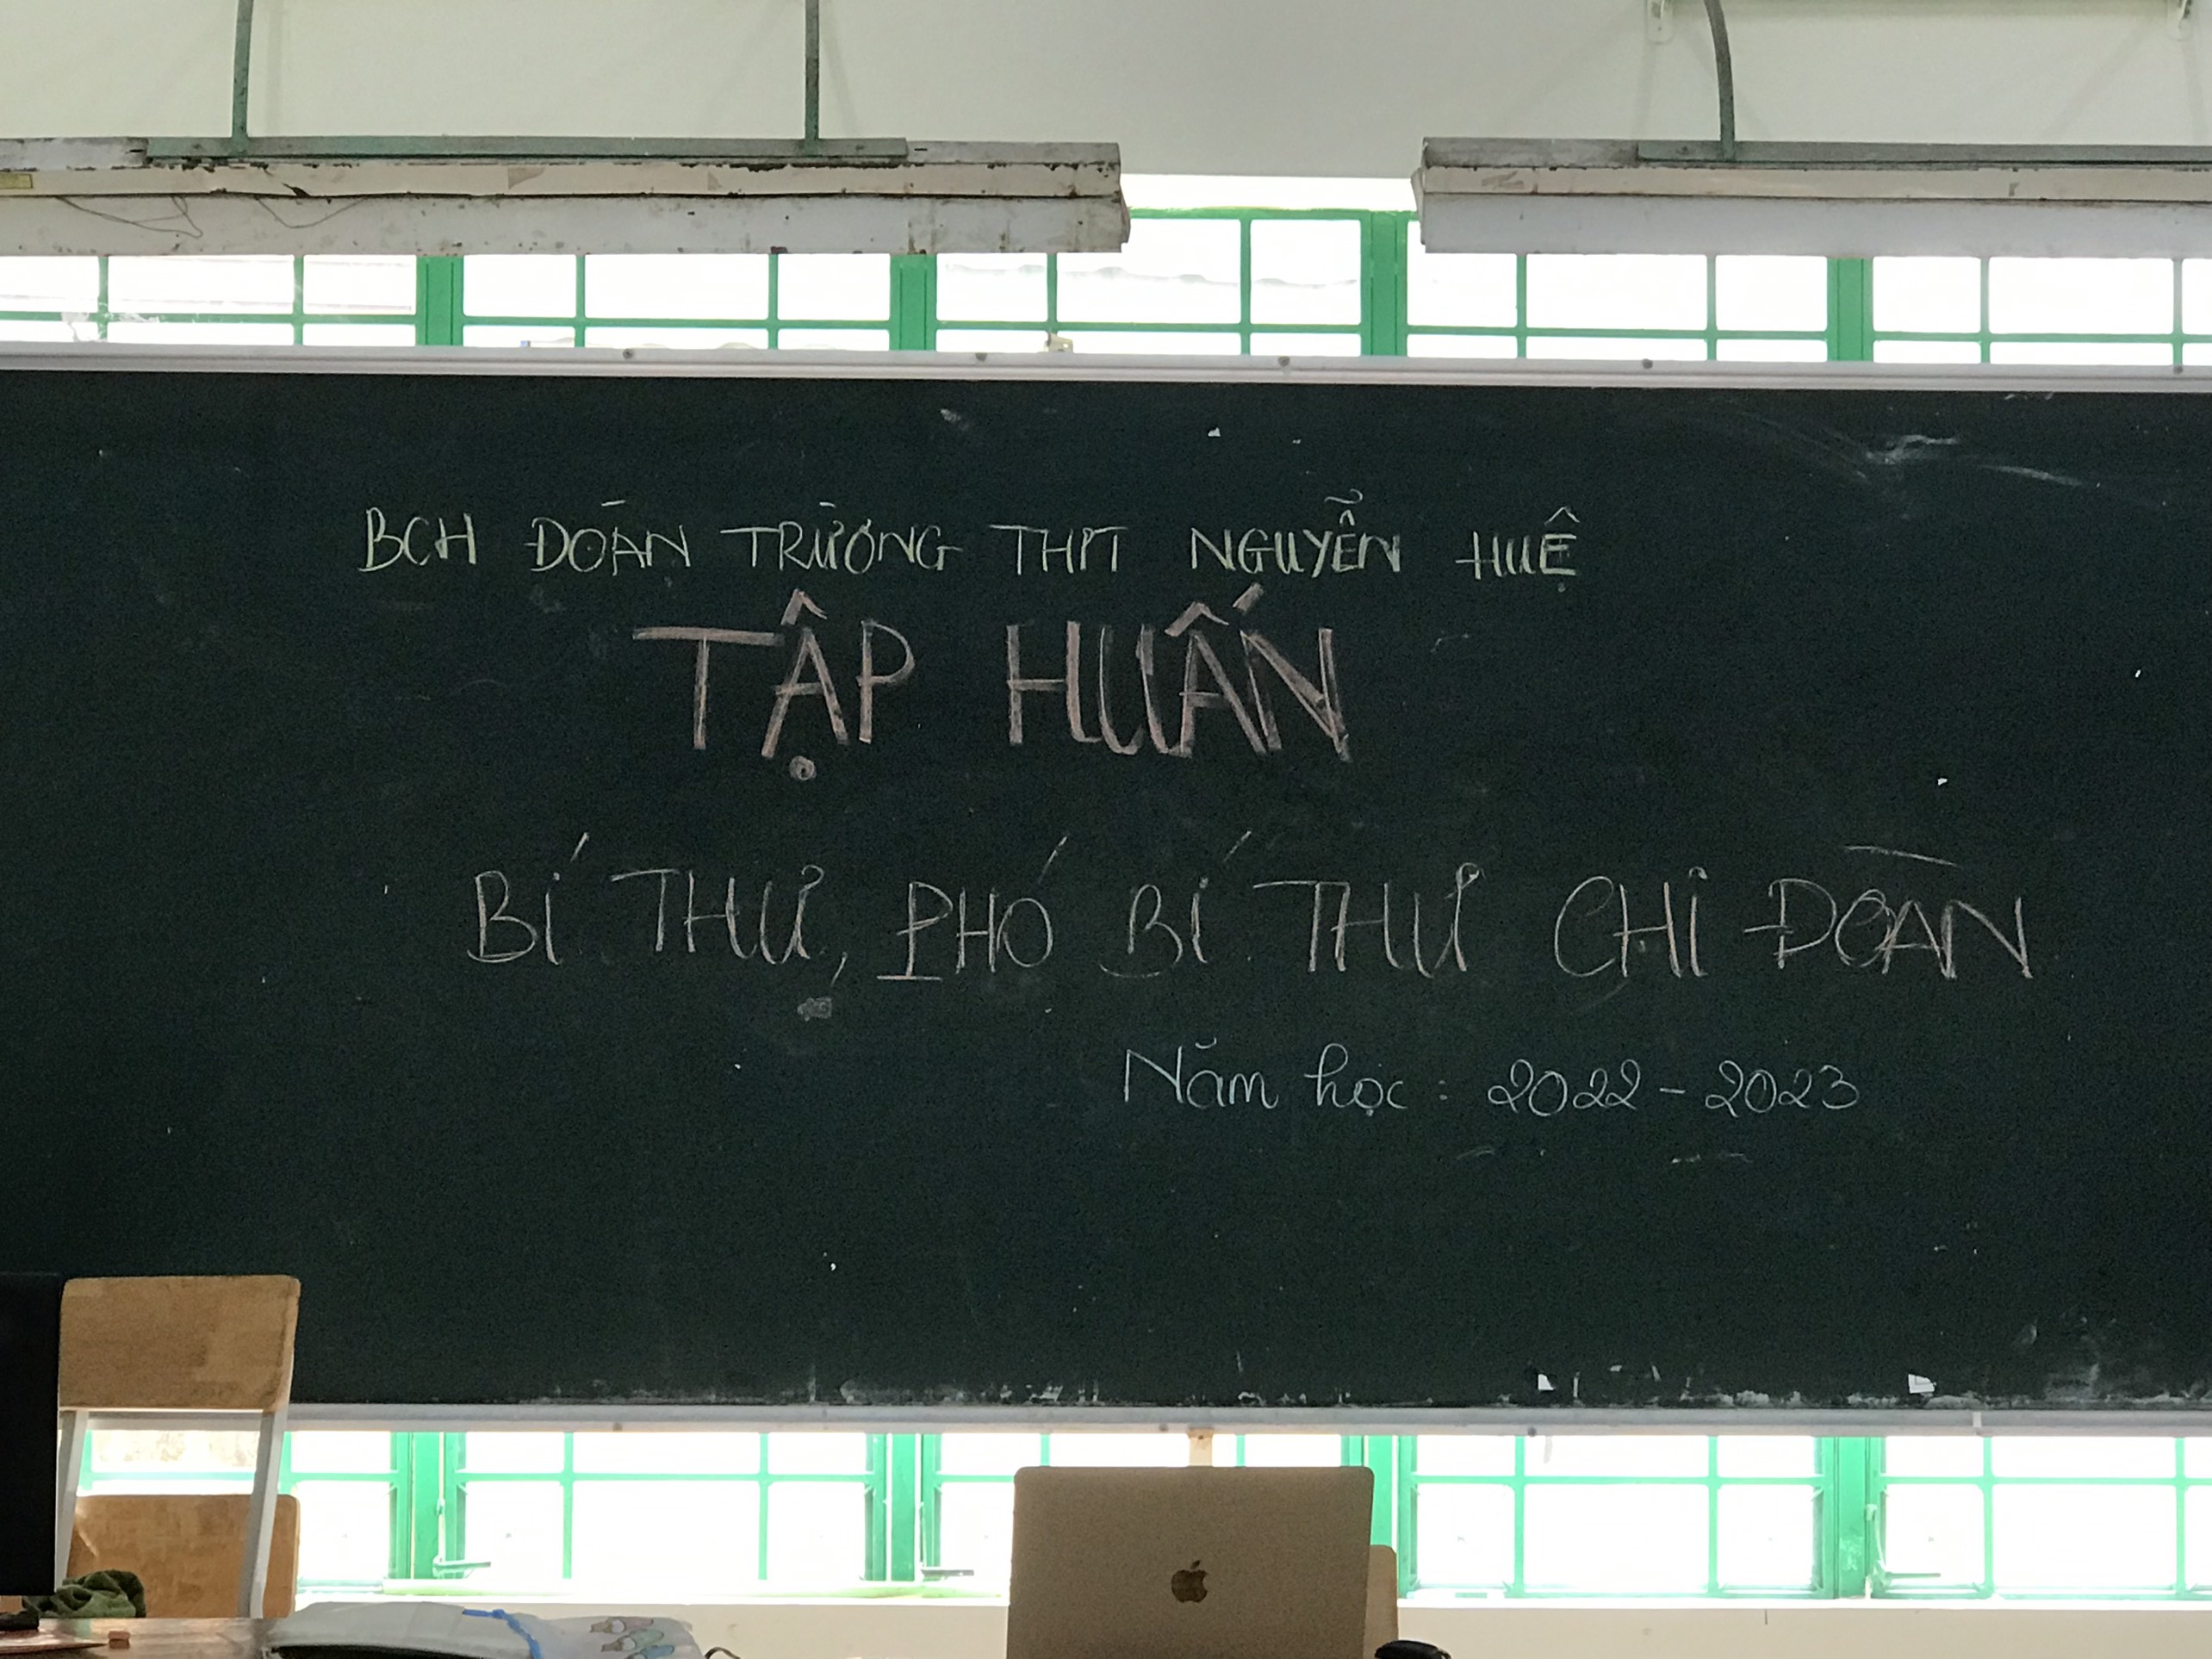 BCH ĐOÀN TRƯỜNG THPT NGUYỄN HUỆ
TẬP HUẤN
BÍ THƯ, PHÓ BÍ THƯ CHI ĐOÀN
Năm học : 2022 - 2023